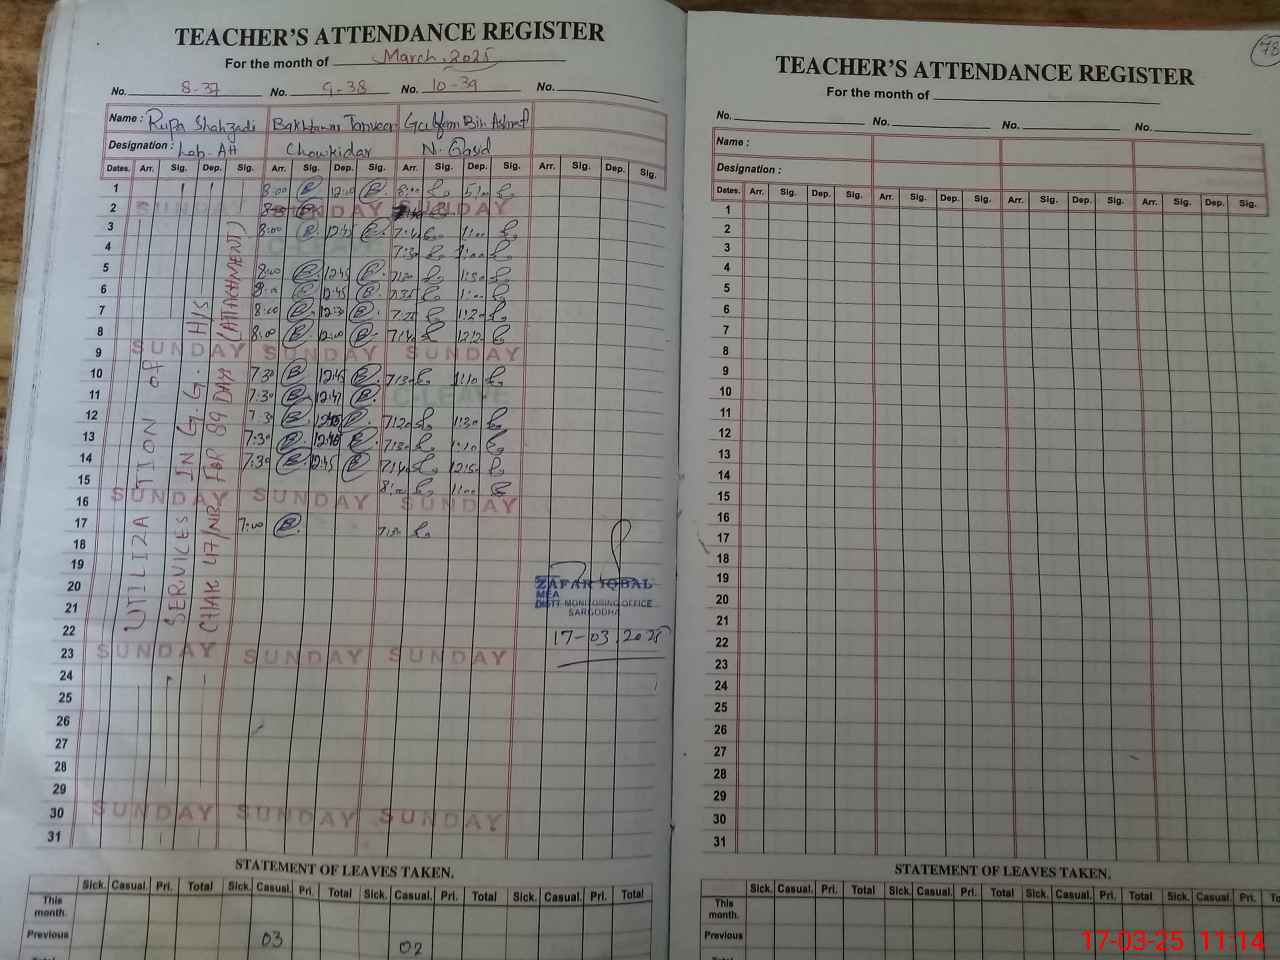 TEACHER'S ATTENDANCE REGISTER
For the month of March. 2025
No. 8-37 No. 9-38 No. 10-39 No.
Name : Rupa Shahzadi Bakhtawar Tanveer Gulfam Bin Ashraf
Designation : Lab. Att Chowkidar N. Qasid
Dates. Arr. Sig. Dep. Sig. Arr. Sig. Dep. Sig. Arr. Sig. Dep. Sig. Arr. Sig. Dep. Sig.
1 8:00 12:00 8:00
2 SUNDAY SUNDAY SUNDAY
3 8:00 1:00
4 7:30 1:00
5 8:00 12:45 1:30
6 8:00 12:45 7:35 1:00
7 8:00 12:30 1:20
8 8:00 12:00
9 SUNDAY SUNDAY SUNDAY
10 7:30 12:45 7:30 1:10
11 7:30 12:47 C-LEAVE
12 7:30 7:20 1:30
13 7:30 7:30 1:10
14 7:30 12:45 7:40
15 8:00 1:00
16 SUNDAY SUNDAY SUNDAY
17 7:00
18
19
20
21
22
23 SUNDAY SUNDAY SUNDAY
24
25
26
27
28
29
30 SUNDAY SUNDAY SUNDAY
31
UTILIZATION of
SERVICES IN G.G. H/S
CHAK 47/NB FOR 89 DAYS (ATTACHMENT)
ZAFAR IQBAL
MEA
DISTT MONITORING OFFICE
SARGODHA
17-03.2025
STATEMENT OF LEAVES TAKEN.
Sick. Casual. Pri. Total Sick. Casual. Pri. Total Sick. Casual. Pri. Total Sick. Casual. Pri. Total
This month.
Previous 03 02
78
TEACHER'S ATTENDANCE REGISTER
For the month of
No. No. No. No.
Name :
Designation :
Dates. Arr. Sig. Dep. Sig. Arr. Sig. Dep. Sig. Arr. Sig. Dep. Sig. Arr. Sig. Dep. Sig.
1
2
3
4
5
6
7
8
9
10
11
12
13
14
15
16
17
18
19
20
21
22
23
24
25
26
27
28
29
30
31
STATEMENT OF LEAVES TAKEN.
Sick. Casual. Pri. Total Sick. Casual. Pri. Total Sick. Casual. Pri. Total Sick. Casual. Pri.
This month.
Previous
17-03-25 11:14